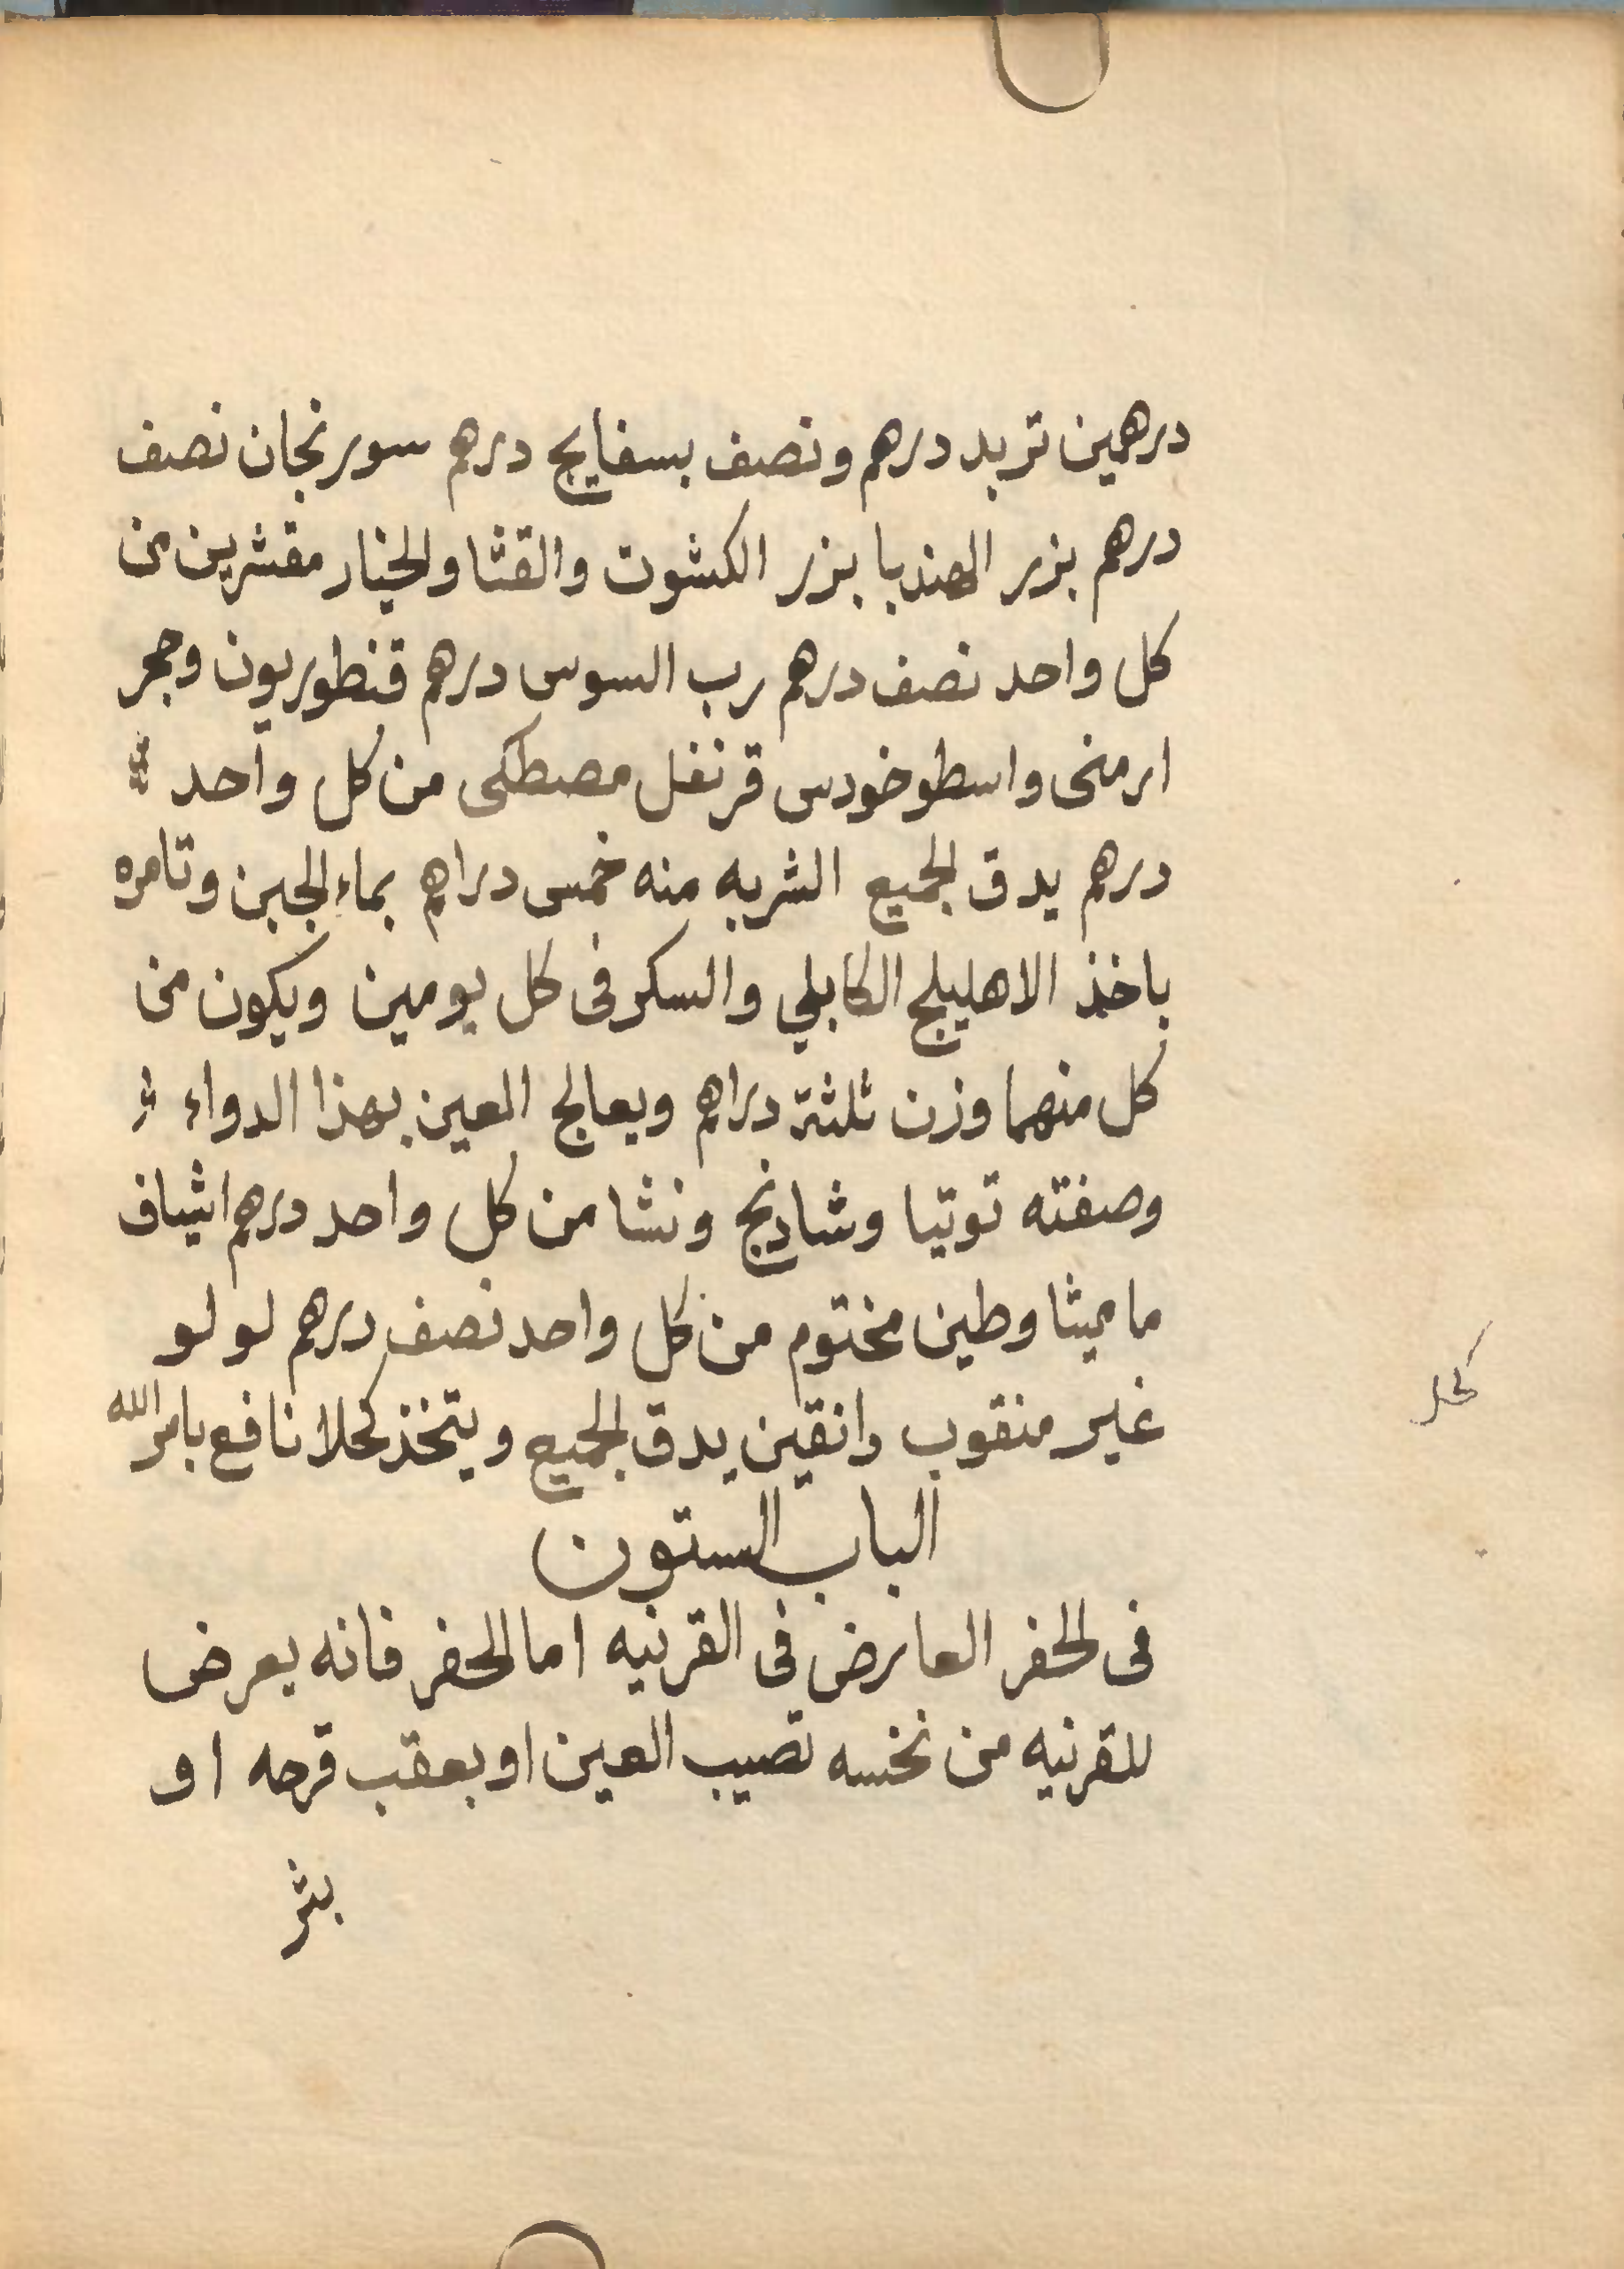 درهمين تربد درهم ونصف بسفايج درهم سورنجان نصف
درهم بزر الهندبا بزر الكشوت والقثا والخيار مقشرين من
كل واحد نصف درهم رب السوس درهم قنطوريون وحجر
ارمنى واسطوخودس قرنفل مصطكى من كل واحد
درهم يدق الجميع الشربه منه خمس دراهم بماء الجبن وتامره
باخذ الاهليلج الكابلي والسكر فى كل يومين ويكون من
كل منهما وزن ثلثة دراهم ويعالج العين بهذا الدواء
وصفته توتيا وشادنج ونشا من كل واحد درهم اشياف
ماميثا وطين مختوم من كل واحد نصف درهم لولو
غير منقوب دانقين يدق الجميع ويتخذ كحلا نافع بامر الله
كحل
الباب الستون
فى الحفر العارض فى القرنيه اما الحفر فانه يعرض
للقرنيه من نخسه تصيب العين او بعقب قرحه او
بثر